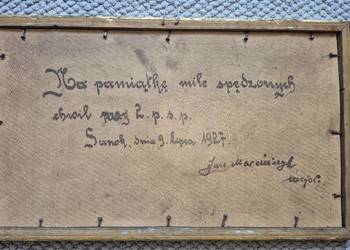 Na pamiątkę mile spędzonych
chwil przy 2. p. s. p.
Sanok, dnia 9. lipca 1927.
Jan
major.